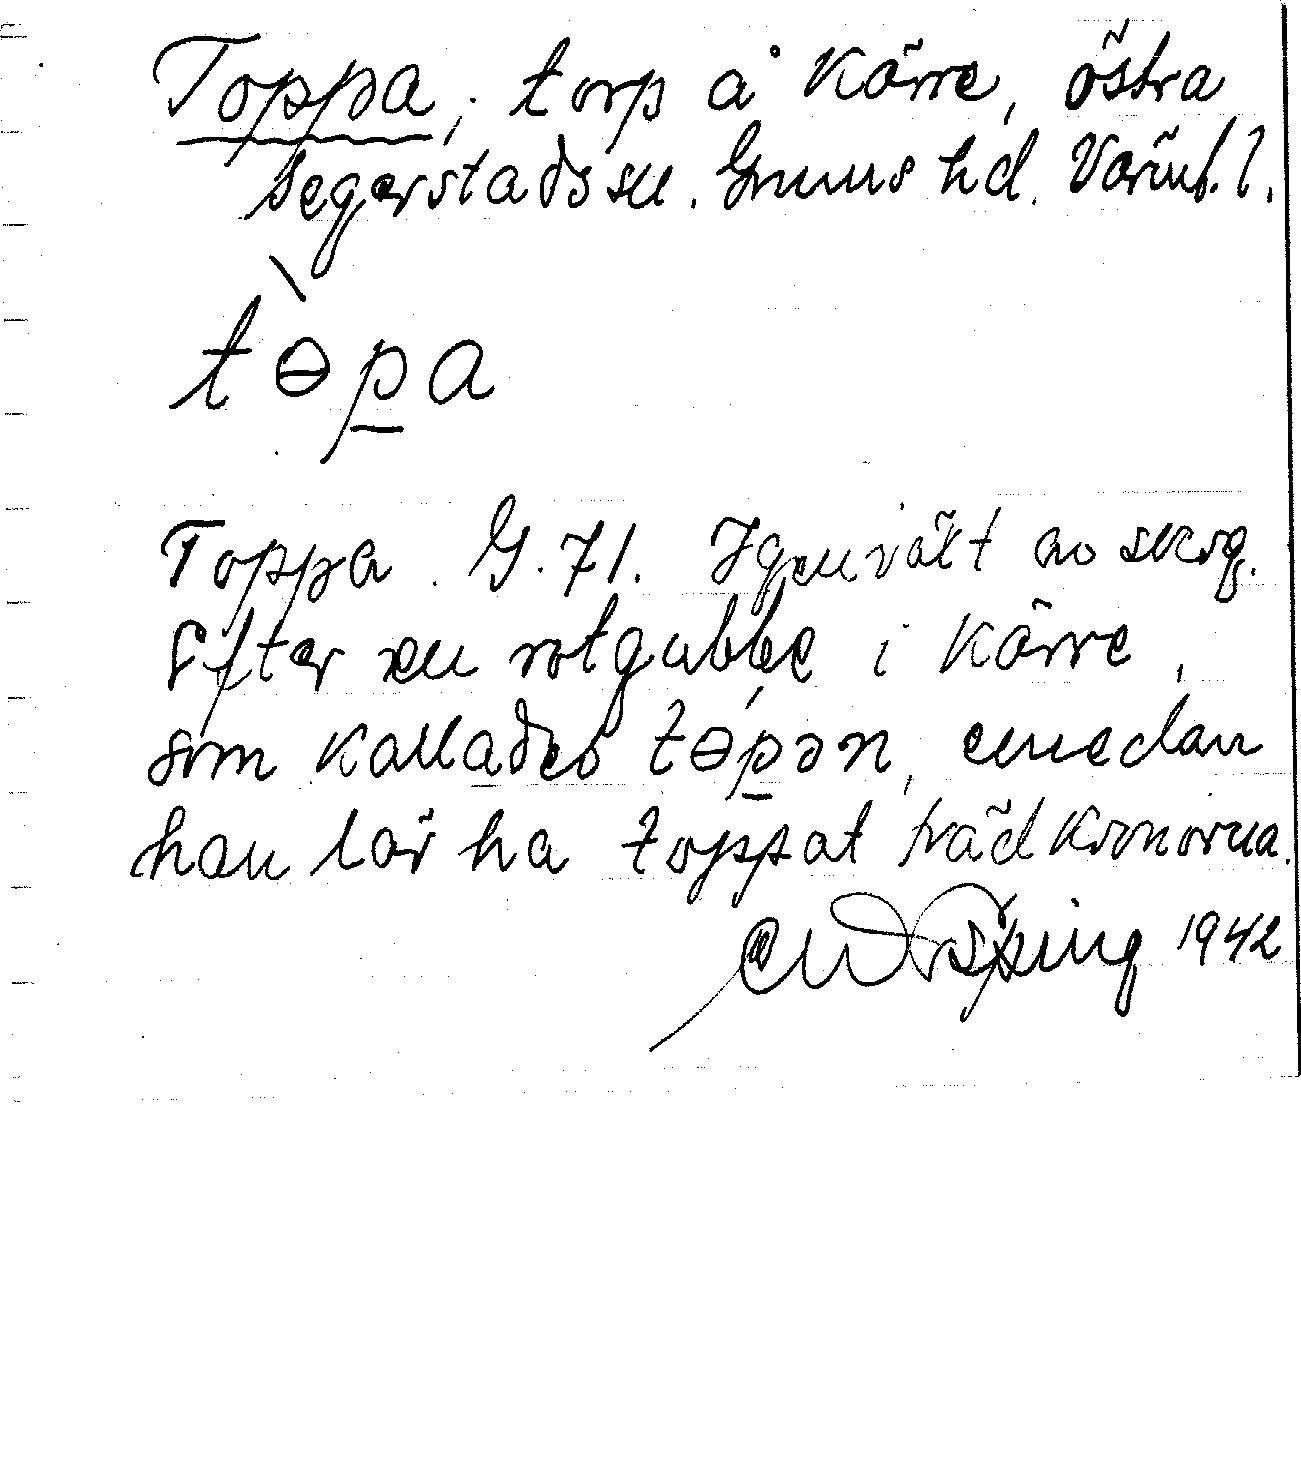 Toppa, torp å Kärre, östra
Segerstads sn. Grums hd. Värml. l.
tɵ̀p̲a
Toppa. G. 71. Igenväxt av skog.
Efter en rotgubbe i Kärre,
som kallades tɵ́p̲ən, emedan
han lär ha toppat trädkronorna.
1942